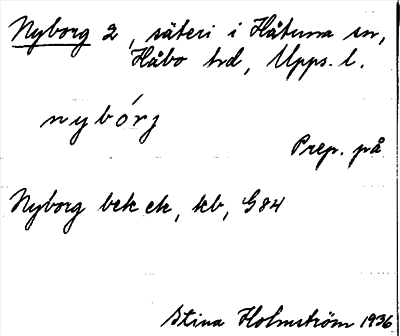 Nyborg 2, säteri i Håtuna sn,
Håbo hd, Upps. l.
nybórj
Prep. på
Nyborg bek ek, kb, G84
Stina Holmström 1936